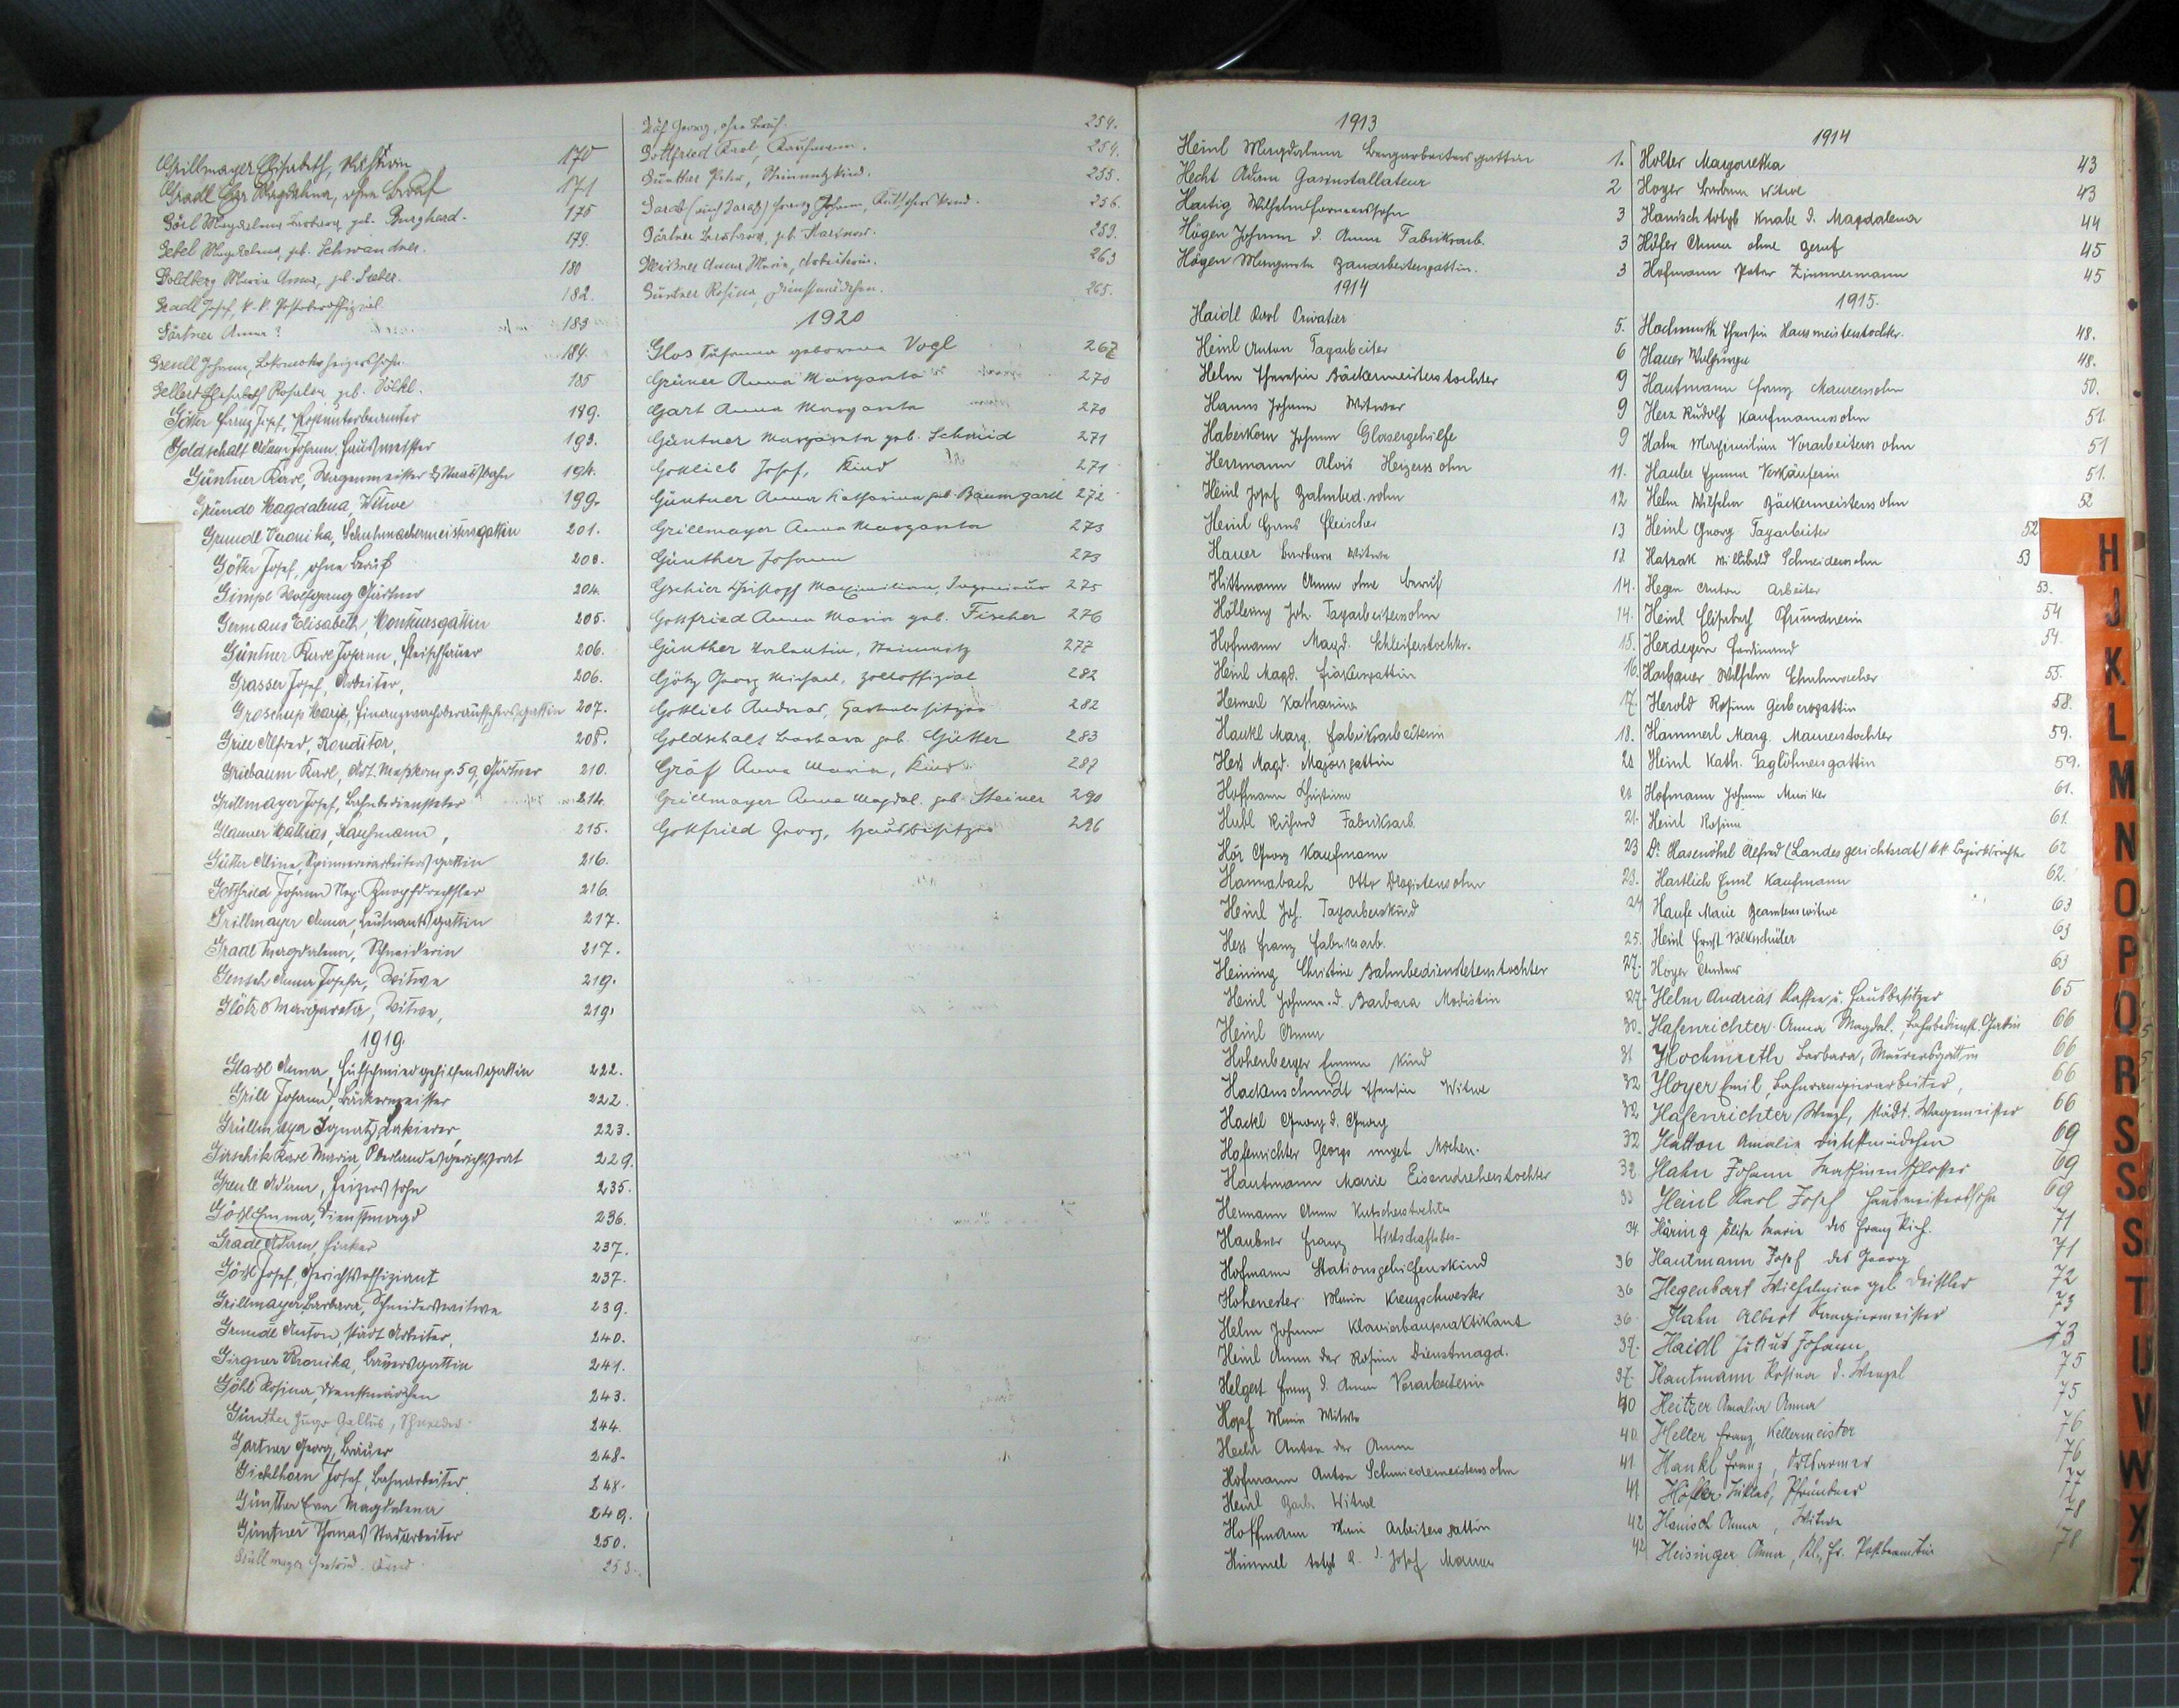 Grillmayer Elisabeth, 170
Gradl Eva Magdalena, ohne Beruf 171
Görl Magdalena Barbara, geb. Burghard. 175
Gebel Magdalena, geb. Schwandner. 179.
Goldberg Maria Anna, geb. 180
Gradl Josef, k. k. 182.
Gärtner Anna? 183
Greull Johann, Lokomotivheizerssohn 184.
Gellert Elisabeth Rosalia geb. Völkl. 185
Götter Franz Josef, Postunterbeamter 189.
Goldschalt Adam Johann, Hausmeister 193.
Güntner Karl, Wagenmeister d. Staatsbahn 194.
Gründe Magdalena, Witwe 199.
Grundl Veronika, Schuhmachermeistersgattin 201.
Götter Josef, ohne Beruf 203.
Gimpl Wolfgang Gärtner 204.
Germans Elisabeth, 205.
Güntner Karl Johann, Fleischhauer 206.
Grasser Josef, Arbeiter, 206.
Groschup Marie, Finanzwachoberaufsehersgattin 207.
Grill Alfred, Konditor, 208.
Griebaum Karl, 59, Gärtner 210.
Grillmayer Josef, Bahnbediensteter 214.
Glauner Mathias, Kaufmann, 215.
Gütter Alina, Spinnereiarbeitersgattin 216.
Gottfried Johann Nep. Knopfdrechsler 216.
Grillmayer Anna, Leutnantsgattin 217.
Gradl Magdalena, Schneiderin 217.
Gensch Anna Josefa, Witwe 219.
Glötz Margareta, Witwe, 219.
1919.
Anna, Hufschmiedgehilfensgattin 222.
Grill Johann, Bäckermeister 222.
Grüllmaya Ignatz, Lakierer, 223.
Girschik Karl Maria, Oberlandesgerichtsrat 229.
Greull Adam, Heizerssohn 235.
Emma, Dienstmagd 236.
Gradl Adam, Fiaker 237.
Josef, Gerichtsoffiziant 237.
Grillmayer Barbara, Schneiderswitwe 239.
Grundl Anton, städt. Arbeiter, 240.
Girgner Veronika, Bauersgattin 241.
Göhl Rosina, Dienstmädchen 243.
Günther Hugo Gallus, 244.
Gartner Georg, Bräuer 248.
Gickelhorn Josef, Bahnarbeiter. 248.
Günther Eva Magdalena 249.
Güntner Thomas Stadtarbeiter 250.
Kind 253.
Gräf Georg, ohne Beruf. 254.
Gottfried Karl, Kaufmann. 254.
Günther Peter, Steinmetzkind. 255.
Franz Johann, Kutschers Kind. 256.
Gärtner Barbara, geb. 259.
Anna Maria, Arbeiterin. 263
Güntner Rosina, Dienstmädchen. 265.
1920
Glos Susanna geborene Vogl 267
Grüner Anna Margareta 270
Gart Anna Margareta 270
Güntner Margareta geb. Schmid 271
Gottlieb Josef, Kind 271
Güntner Anna Katharina geb. Baumgartl 272
Grillmayer Anna Margareta 273
Günther Johann 273
Gschier Christoff Maximilian, Ingenieur 275
Gottfried Anna Maria geb. Fischer 276
Günther Valentin, Steinmetz 277
Götz Georg Michael, Zolloffizial 282
Gottlieb Andreas, Gartenbesitzer 282
Goldschalt Barbara geb. Gütter 283
Gräf Anna Maria, Kind 287
Grillmayer Anna Magdal. geb. Steiner 290
Gottfried Georg, Hausbesitzer 296
1913
Heinl Magdalena Bergarbeitersgattin 1.
Hecht Adam Gasinstallateur 2
Hartig Wilhelm Formerssohn 3
Högen Johann d. Anna Fabriksarb. 3
Högen Margareta Bauarbeitersgattin. 3
1914
Haidl Karl Privatier 5.
Heinl Anton Tagarbeiter 6
Helm Theresia Bäckermeisterstochter 9
Hanns Johann Witwer 9
Haberkorn Johann Glasergehilfe 9
Herrmann Alois Heizerssohn 11.
Heinl Josef Bahnbed. sohn 12
Heinl Hans Fleischer 13
Hauer Barbara Witwe 13
Hittmann Anna ohne Beruf 14.
Höllering Joh. Tagarbeiterssohn 14.
Hofmann Magd. Schleiferstochter. 15.
Heinl Magd. Fiakersgattin 16.
Hermerl Katharina 17.
Hankl Marg. Fabriksarbeiterin 18.
Hess Magd. Majorsgattin 20
Hoffmann Christine 20
Hubl Richard Fabriksarb. 21.
Hör Georg Kaufmann 23
Hannabach Otto Drogistensohn 23.
Heinl Jos. Tagarberskind 24
Hess Franz Fabriksarb. 25.
Heining Christine Bahnbedienstetenstochter 27.
Heinl Johanna d. Barbara Modistin 27.
Heinl Anna 30.
Hohenberger Emma Kind 31
Hackenschmidt Theresia Witwe 32
Hackl Georg d. Georg 32
Hafenrichter Georgs unget. Mädchen. 32
Hautmann Marie Eisendreherstochter 32.
Hermann Anna Kutscherstochter 33
Haubner Franz Wirtschaftsbes. 34
Hofmann Stationsgehilfenskind 36
Hohenester Maria Kreuzschwester 36
Helm Johann Klavierbaupraktikant 36
Heinl Anna der Rosina Dienstmagd. 37.
Helgert Franz d. Anna Vorarbeiterin 37.
Hopf Maria Witwe 40
Hecht Anton der Anna 40
Hofmann Anton Schmiedemeisterssohn 41
Heinl Barb. Witwe 41
Hoffmann Maria Arbeitersgattin 42
Himmel totgb. K. d. Josef Maurer 42
1914
Holter Margaretha 43
Hoyer Barbara Witwe 43
Hanisch totgb Knabe d. Magdalena 44
Höfer Anna ohne Beruf 45
Hofmann Peter Zimmermann 45
1915.
Hochmuth Theresia Hausmeisterstochter. 48.
Hauer Wolfgang 48.
Hautmann Franz Maurerssohn 50.
Herz Rudolf Kaufmannssohn 51.
Hahn Maximilian Vorarbeiterssohn 51
Hauler Emma Verkäuferin 51.
Helm Wilhelm Bäckermeisterssohn 52
Heinl Georg Tagarbeiter 52
Hatzak Willibald Schneiderssohn 53
Hegen Anton Arbeiter 53.
Heinl Elisabeth Pfründnerin 54
Herdegen Ferdinand 54.
Harbauer Wilhelm Schuhmacher 55.
Herold Rosina Gerbersgattin 58.
Hammerl Marg. Maurerstochter 59.
Heinl Kath. Taglöhnersgattin 59.
Hofmann Johann Musiker 61.
Heinl Rosina 61.
Dr. Hasenöhrl Alfred (Landesgerichtsrat) k.k. Bezirksrichter 62
Hartlich Emil Kaufmann 62.
Haufe Marie Beamtenswitwe 63
Heinl Ernst Volksschüler 63
Hoyer Andreas 63
Helm Andreas Kaffee u. Hausbesitzer 65
Hafenrichter Anna Magdal., Bahnbedienst. Gattin 66
Hochmuth Barbara, Maurersgattin 66
Hoyer Emil, Bahnrangierarbeiter, 66
Hafenrichter Wenzl, städt. Wagemeister 66
Hatton Amalie Dienstmädchen 69
Hahn Johann Maschinenschlosser 69
Heinl Karl Josef Hausmeisterssohn 69
Häring Elise Maria des Franz Rich. 71
Hautmann Josef des Georg 71
Hegenbart Wilhelmine geb. Deistler 72
Hahn Albert Rangiermeister 73
Haidl Julius Johann 73
Hautmann Rosina d. Wenzel 75
Heitzer Amalia Anna 75
Heller Franz Kellermeister 76
Hankl Franz, 76
Höfler Niklas, Pfründner 77
Hanisch Anna, Witwe 78
Heisinger Anna, Postbeamtin 78
H
J
K
L
M
N
O
P
Q
R
S
S
S
T
U
V
W
X
Z